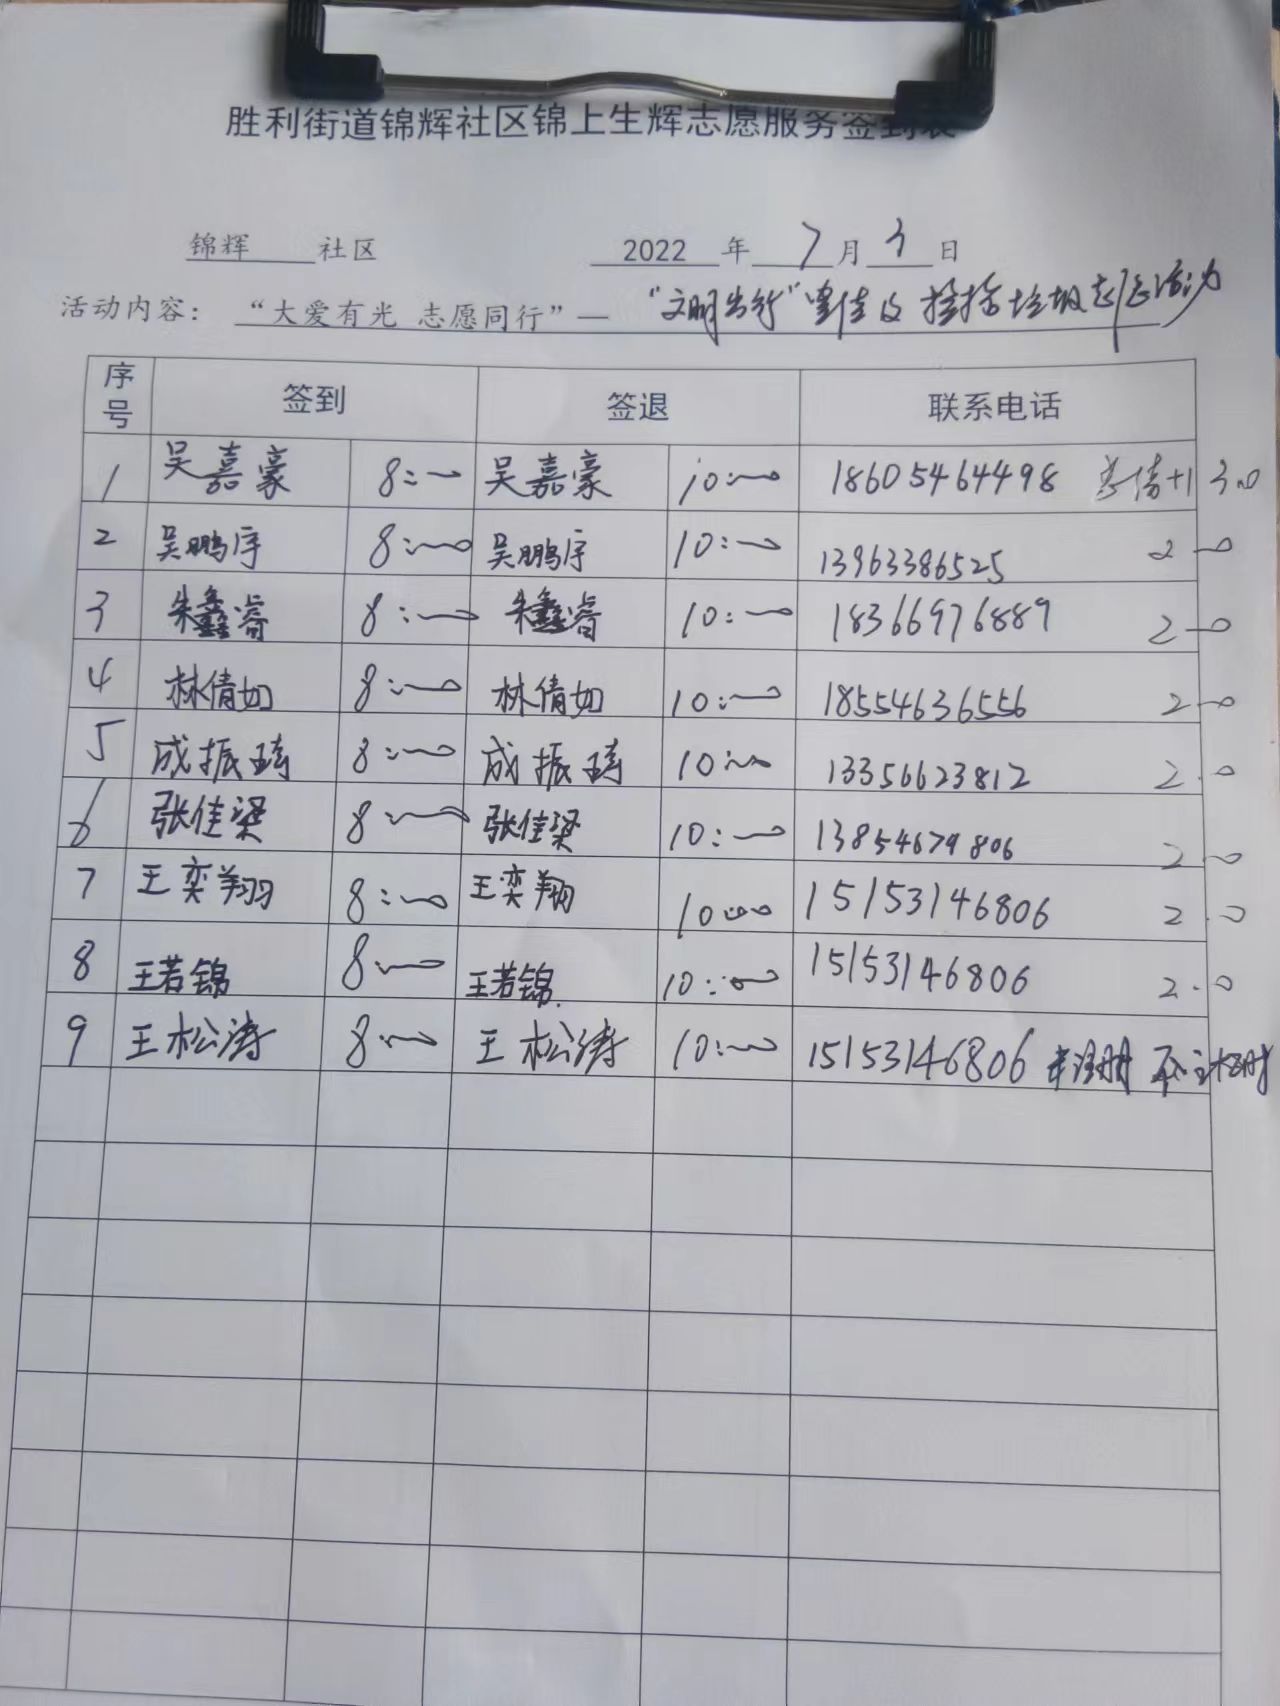 胜利街道锦辉社区锦上生辉志愿服务签到表
锦辉 社区 2022 年 7 月 3 日
活动内容： “大爱有光 志愿同行”— “文明出行”宣传及捡拾垃圾志愿活动
序号 签到 签退 联系电话
1 吴嘉豪 8:00 吴嘉豪 10:00 18605464498 +1 3.0
2 吴鹏宇 8:00 吴鹏宇 10:00 13963386525 2.0
3 朱鑫睿 8:00 朱鑫睿 10:00 18366976889 2.0
4 林倩如 8:00 林倩如 10:00 18554636556 2.0
5 成振琦 8:00 成振琦 10:00 13356623812 2.0
6 张佳梁 8:00 张佳梁 10:00 13854679806 2.0
7 王奕翔 8:00 王奕翔 10:00 15153146806 2.0
8 王若锦 8:00 王若锦 10:00 15153146806 2.0
9 王松涛 8:00 王松涛 10:00 15153146806 未注册 不计时